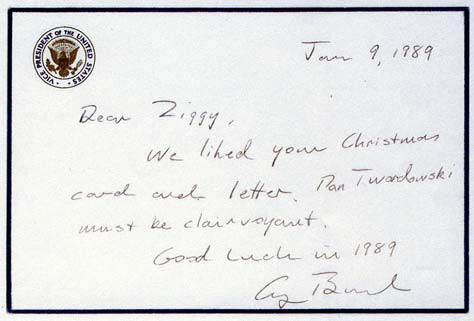 VICE PRESIDENT OF THE UNITED STATES
Jan 9, 1989
Dear Ziggy,
We liked your Christmas
card and letter. Pan Twardowski
must be clairvoyant.
Good luck in 1989
Bush